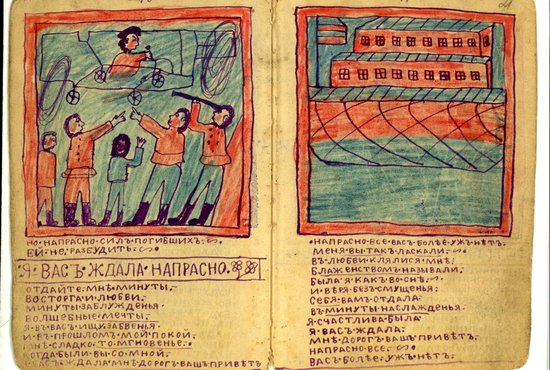 НО·НАПРАСНО·СИЛЪ·ПОГИБШИХЪ
ЕЙ·НЕ·РАЗБУДИТЬ
Я·ВАСЪ·ЖДАЛА·НАПРАСНО
ОТДАЙТЕ·МНѢ·МИНУТЫ
ВОСТОРГА·И·ЛЮБВИ
МИНУТЫ·ЗАБЛУЖДЕНЬЯ
ВОЛШЕБНЫЕ·МЕЧТЫ
Я·ВЪ·ВАСЪ·ИЩУ·ЗАБВЕНЬЯ
И·ВЪ·ПРОШЛОМЪ·МОЙ·ПОКОЙ
МНѢ·СЛАДКО·ТО·МГНОВЕНЬЕ
КОГДА·БЫЛИ·ВЫ·СО·МНОЙ
Я·ВАСЪ·ЖДАЛА·МНѢ·ДОРОГЪ·ВАШЪ·ПРИВѢТЪ
НАПРАСНО·ВСЕ·ВАСЪ·БОЛѢЕ·УЖЪ·НѢТЪ
МЕНЯ·ВЫ·ТАКЪ·ЛАСКАЛИ
ВЪ·ЛЮБВИ·КЛЯЛИСЯ·МНѢ
БЛАЖЕНСТВОМЪ·НАЗЫВАЛИ
БЫЛА·Я·КАКЪ·ВО·СНѢ
И·ВѢРЯ·БЕЗЪ·СМУЩЕНЬЯ
СЕБЯ·ВАМЪ·ОТДАЛА
ВЪ·МИНУТЫ·НАСЛАЖДЕНЬЯ
Я·СЧАСТЛИВА·БЫЛА
Я·ВАСЪ·ЖДАЛА
МНѢ·ДОРОГЪ·ВАШЪ·ПРИВѢТЪ
НАПРАСНО·ВСЕ
ВАСЪ·БОЛѢЕ·УЖЪ·НѢТЪ